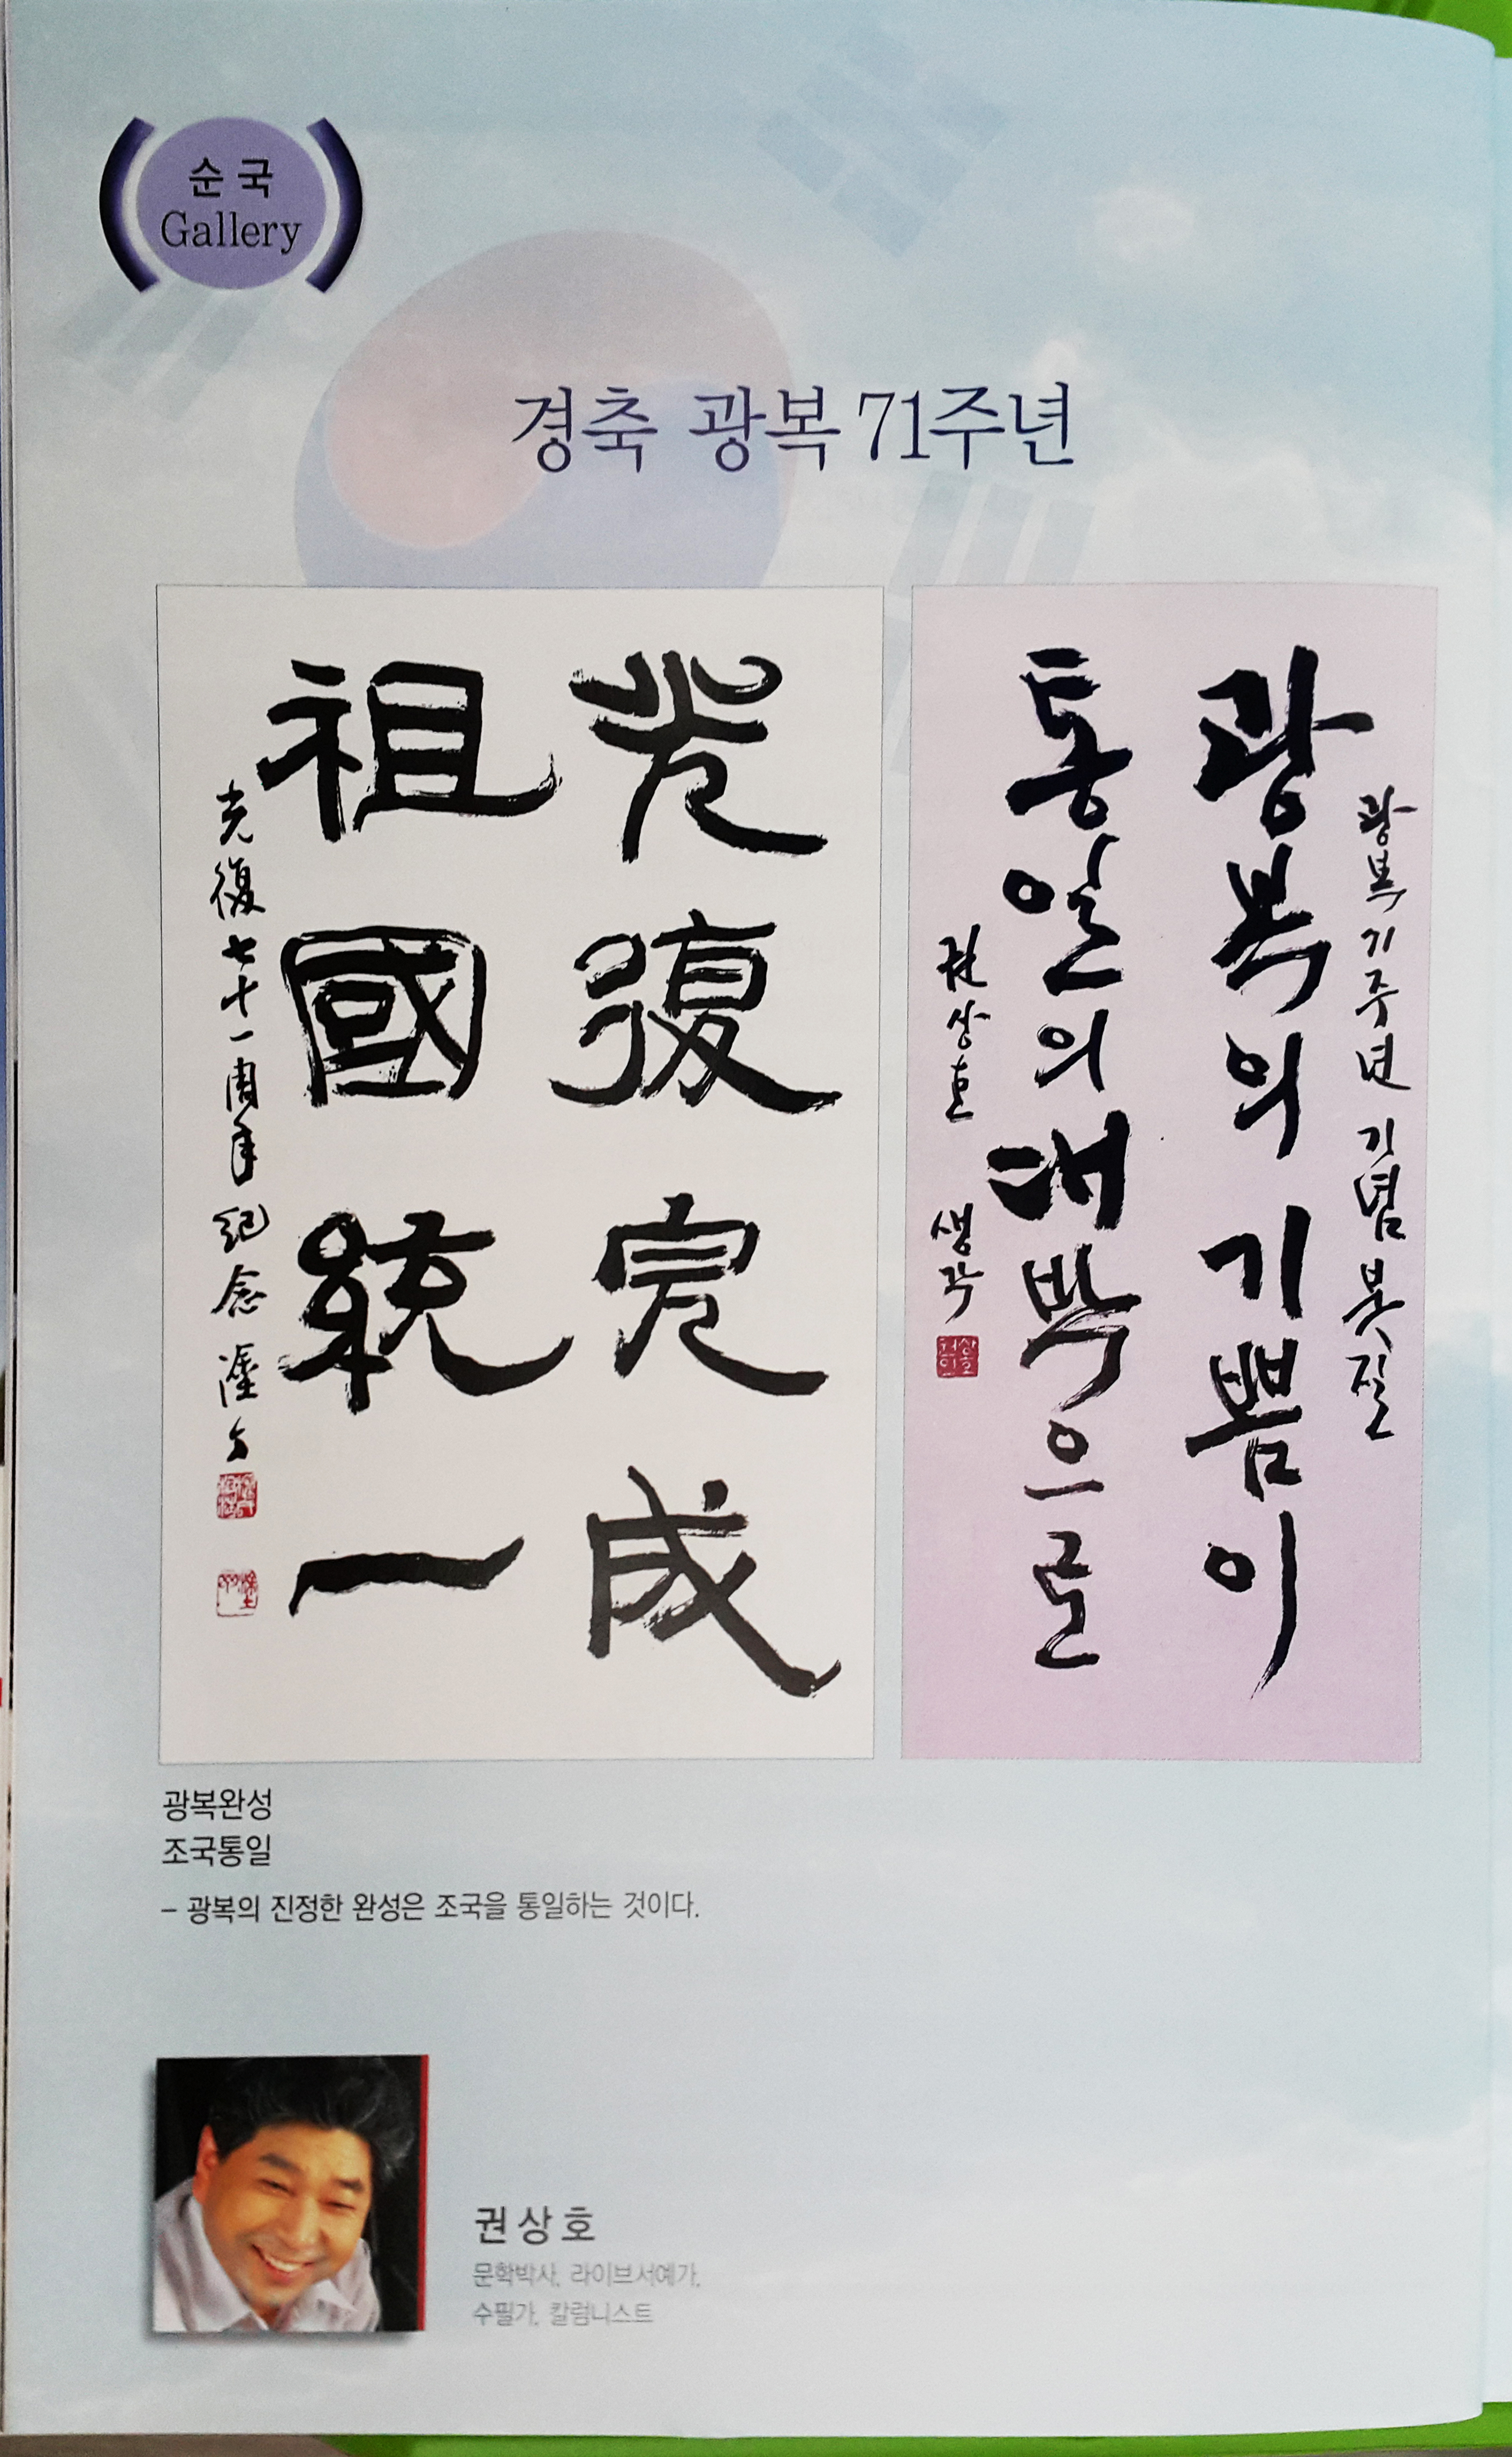 순국
Gallery
경축 광복 71주년
光復完成
祖國統一
光復七十一周年紀念
광복 71주년 기념 붓질
광복의 기쁨이
통일의 대박으로
권상호 생각
광복완성
조국통일
– 광복의 진정한 완성은 조국을 통일하는 것이다.
권상호
문학박사, 라이브서예가,
수필가, 칼럼니스트